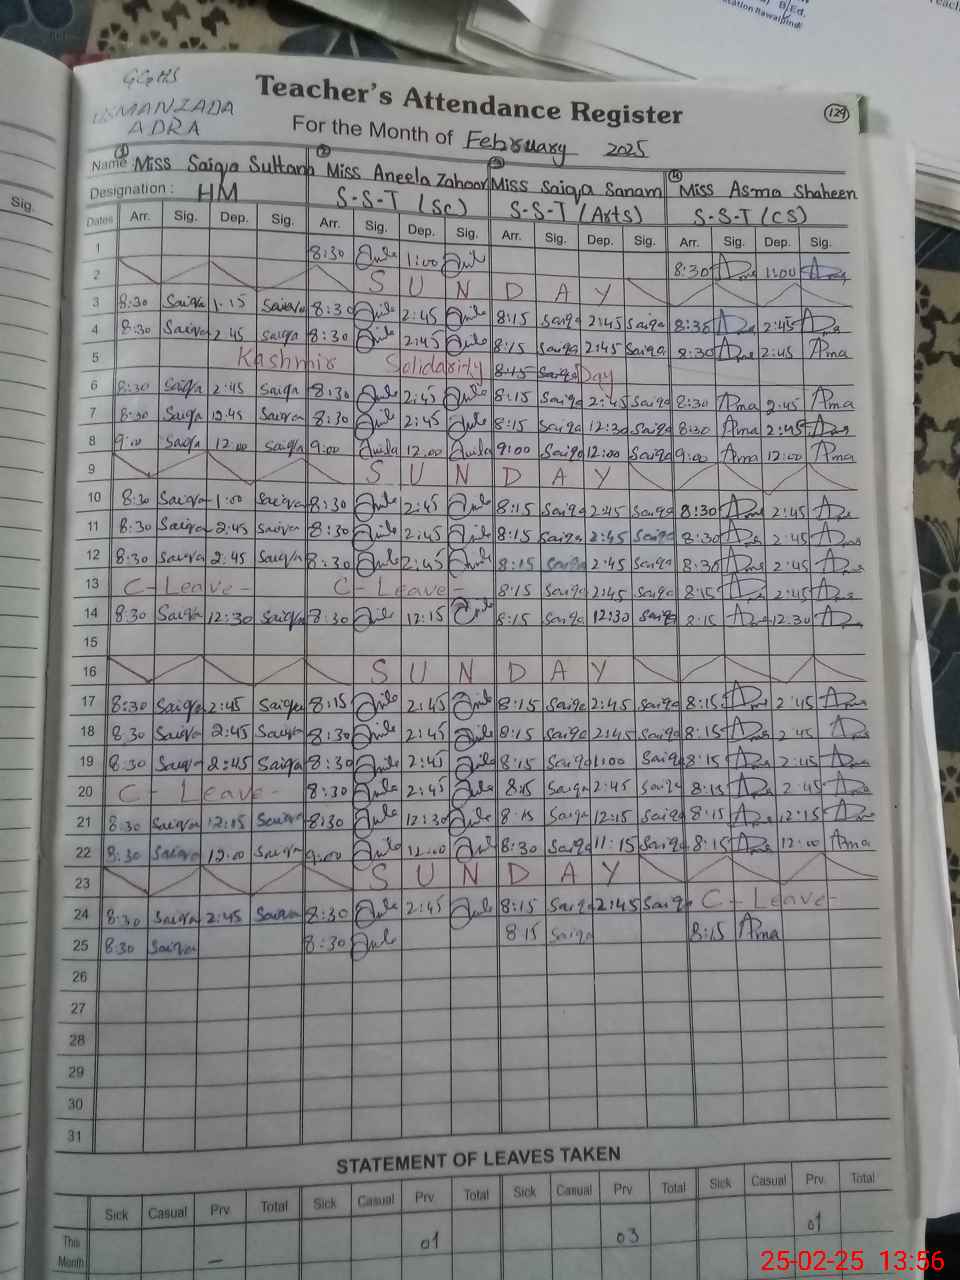 B.Ed.
station Rawalpindi
Sig.
GGHS
USMANZADA
ADRA
Teacher's Attendance Register
129
For the Month of February 2025
Name : 1 Miss Saiqa Sultana 2 Miss Aneela Zahoor 3 Miss Saiqa Sanam 4 Miss Asma Shaheen
Designation : HM S-S-T (Sc) S-S-T (Arts) S-S-T (CS)
Dates Arr. Sig. Dep. Sig. Arr. Sig. Dep. Sig. Arr. Sig. Dep. Sig. Arr. Sig. Dep. Sig.
1 8:30 1:00 8:30 1:00
2 S U N D A Y
3 8:30 Saiqa 1:15 Saiqa 8:30 2:45 8:15 Saiqa 2:45 Saiqa 8:30 2:45
4 8:30 Saiqa 2:45 Saiqa 8:30 2:45 8:15 Saiqa 2:45 Saiqa 8:30 2:45 Ama
5 Kashmir Solidarity 8:15 Saiqa Day
6 8:30 Saiqa 2:45 Saiqa 8:30 2:45 8:15 Saiqa 2:45 Saiqa 8:30 Ama 2:45 Ama
7 8:30 Saiqa 12:45 Saiqa 8:30 2:45 8:15 Saiqa 12:30 Saiqa 8:30 Ama 2:45
8 9:00 Saiqa 12:00 Saiqa 9:00 12:00 9:00 Saiqa 12:00 Saiqa 9:00 Ama 12:00 Ama
9 S U N D A Y
10 8:30 Saiqa 1:00 Saiqa 8:30 2:45 8:15 Saiqa 2:45 Saiqa 8:30 2:45
11 8:30 Saiqa 2:45 Saiqa 8:30 2:45 8:15 Saiqa 2:45 Saiqa 8:30 2:45
12 8:30 Saiqa 2:45 Saiqa 8:30 2:45 8:15 Saiqa 2:45 Saiqa 8:30 2:45
13 C-Leave- C-Leave- 8:15 Saiqa 2:45 Saiqa 8:15 2:45
14 8:30 Saiqa 12:30 Saiqa 8:30 12:15 8:15 Saiqa 12:30 Saiqa 8:15 12:30
15
16 S U N D A Y
17 8:30 Saiqa 2:45 Saiqa 8:15 2:45 8:15 Saiqa 2:45 Saiqa 8:15 2:45
18 8:30 Saiqa 2:45 Saiqa 8:30 2:45 8:15 Saiqa 2:45 Saiqa 8:15 2:45
19 8:30 Saiqa 2:45 Saiqa 8:30 2:45 8:15 Saiqa 1:00 Saiqa 8:15 2:45
20 C- Leave- 8:30 2:45 8:15 Saiqa 2:45 Saiqa 8:15 2:45
21 8:30 Saiqa 12:15 Saiqa 8:30 12:30 8:15 Saiqa 12:15 Saiqa 8:15 12:15
22 8:30 Saiqa 12:00 Saiqa 9:00 12:00 8:30 Saiqa 11:15 Saiqa 8:15 12:00 Ama
23 S U N D A Y
24 8:30 Saiqa 2:45 Saiqa 8:30 2:45 8:15 Saiqa 2:45 Saiqa C-Leave-
25 8:30 Saiqa 8:30 8:15 Saiqa 8:15 Ama
26
27
28
29
30
31
STATEMENT OF LEAVES TAKEN
Sick Casual Prv. Total Sick Casual Prv Total Sick Casual Prv Total Sick Casual Prv. Total
This Month - 01 03 01
25-02-25 13:56